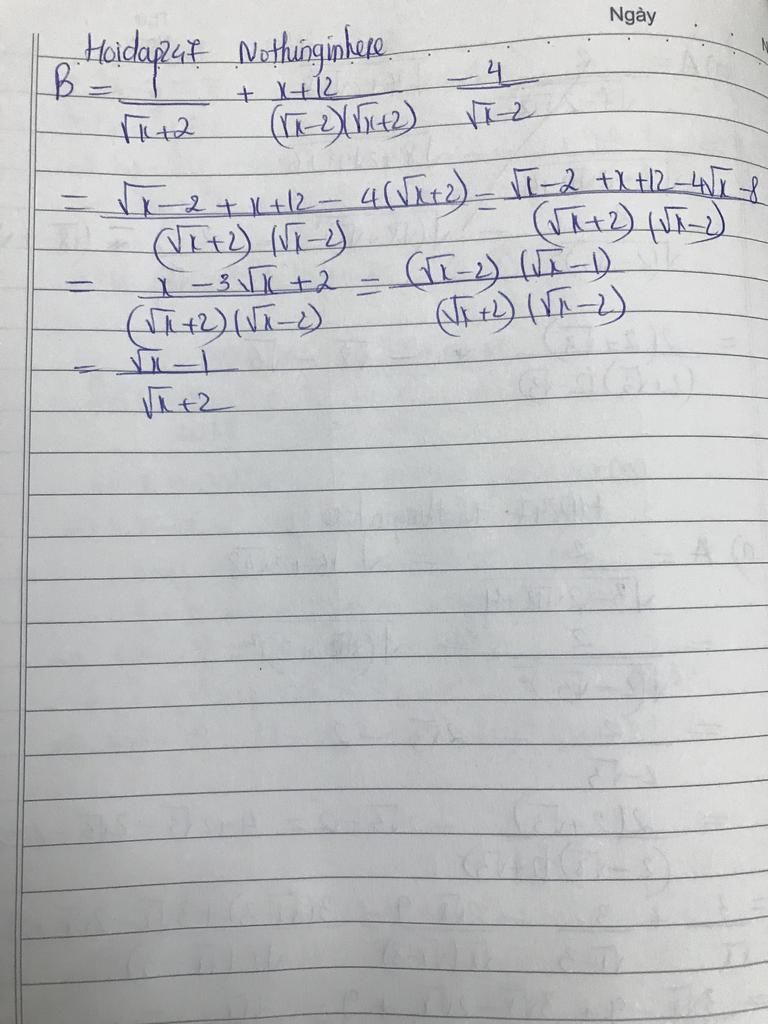 Ngày
Hoidap247 Nothinginhere
B = 1/(√x+2) + (x+12)/((√x-2)(√x+2)) - 4/(√x-2)
= (√x-2+x+12-4(√x+2))/((√x+2)(√x-2)) = (√x-2+x+12-4√x-8)/((√x+2)(√x-2))
= (x-3√x+2)/((√x+2)(√x-2)) = ((√x-2)(√x-1))/((√x+2)(√x-2))
= (√x-1)/(√x+2)